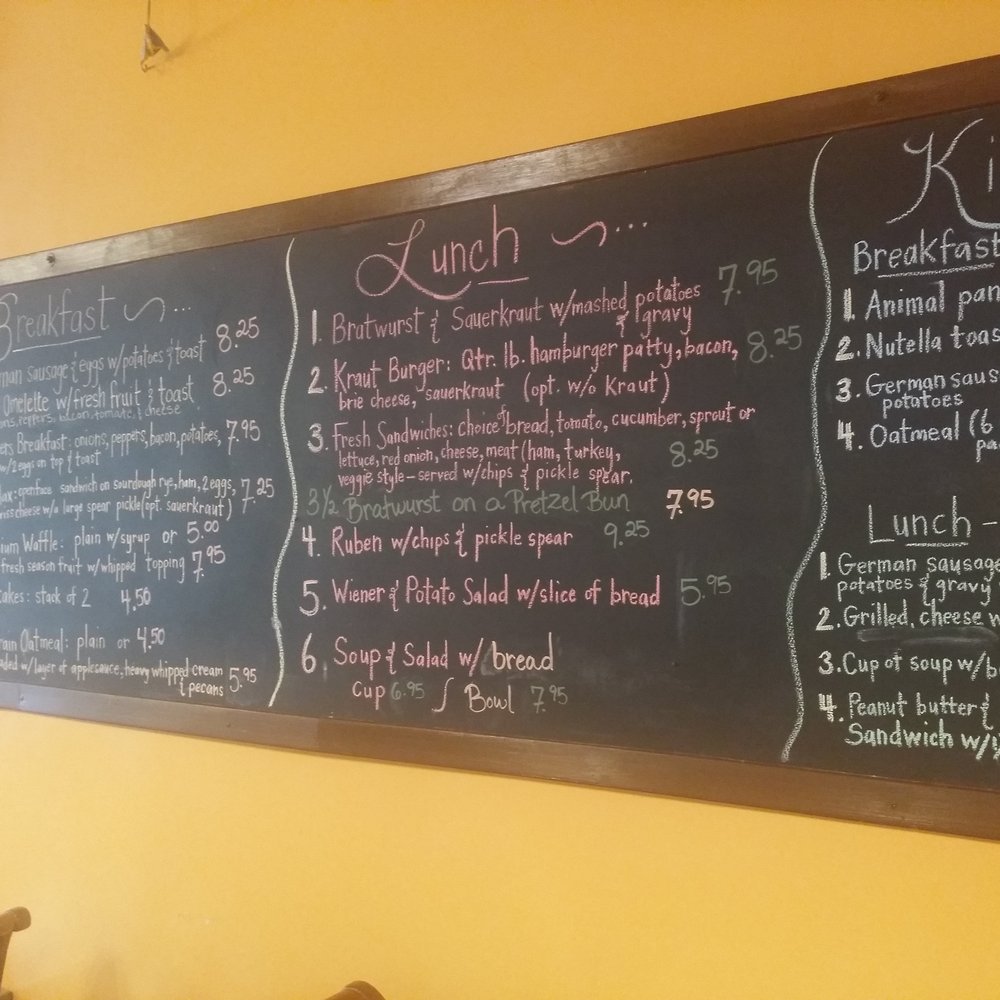 Breakfast ~...
man Sausage & eggs w/potatoes & toast 8.25
Omelette w/fresh fruit & toast 8.25
ons, peppers, bacon, tomato, & cheese
ers Breakfast: onions, peppers, bacon, potatoes, 7.95
w/2 eggs on top & toast
ax: openface sandwich on sourdough rye, ham, 2 eggs, 7.25
wiss cheese w/a large spear pickle (opt. sauerkraut)
ium Waffle: plain w/syrup or 5.00
fresh season fruit w/whipped topping 7.95
cakes: stack of 2 4.50
rain Oatmeal: plain or 4.50
aded w/layer of applesauce, heavy whipped cream
& pecans 5.95
Lunch ~...
1. Bratwurst & Sauerkraut w/mashed potatoes 7.95
& gravy
2. Kraut Burger: Qtr. lb. hamburger patty, bacon, 8.25
brie cheese, sauerkraut (opt. w/o Kraut)
3. Fresh Sandwiches: choice of bread, tomato, cucumber, sprout or
lettuce, red onion, cheese, meat (ham, turkey, 8.25
veggie style - served w/chips & pickle spear.
3 1/2 Bratwurst on a Pretzel Bun 7.95
4. Ruben w/chips & pickle spear 9.25
5. Wiener & Potato Salad w/slice of bread 5.95
6. Soup & Salad w/ bread
Cup 6.95 / Bowl 7.95
Ki
Breakfast
1. Animal pan
2. Nutella toas
3. German saus
potatoes
4. Oatmeal (b
pa
Lunch -
1. German sausage
potatoes & gravy
2. Grilled, cheese w
3. Cup of soup w/b
4. Peanut butter &
Sandwich w/